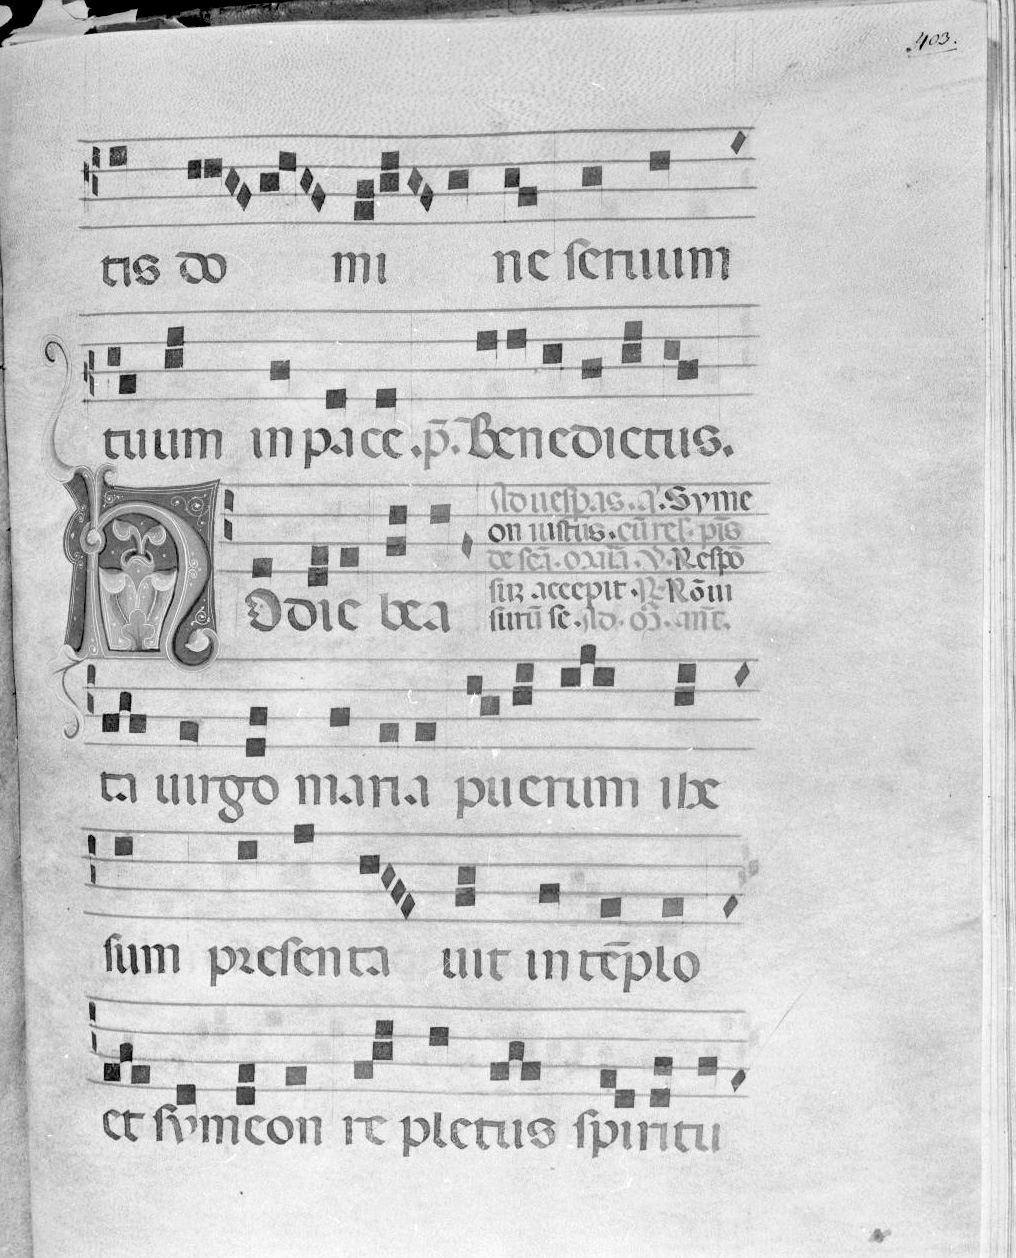 403.
tis do mi ne seruum
tuum in pace .p̄. Benedictus.
Ad uesp̄as. a᷎. Syme
on iustus. cū res̄. p̄is
de sc̄a. oraīa. V. Respō
sū accepit. R. Rom̄
surū se. Ad. m̄. ant̄.
Hodie bea
ta uirgo maria puerum ihe
sum presenta uit in tēplo
et symeon re pletus spiritu